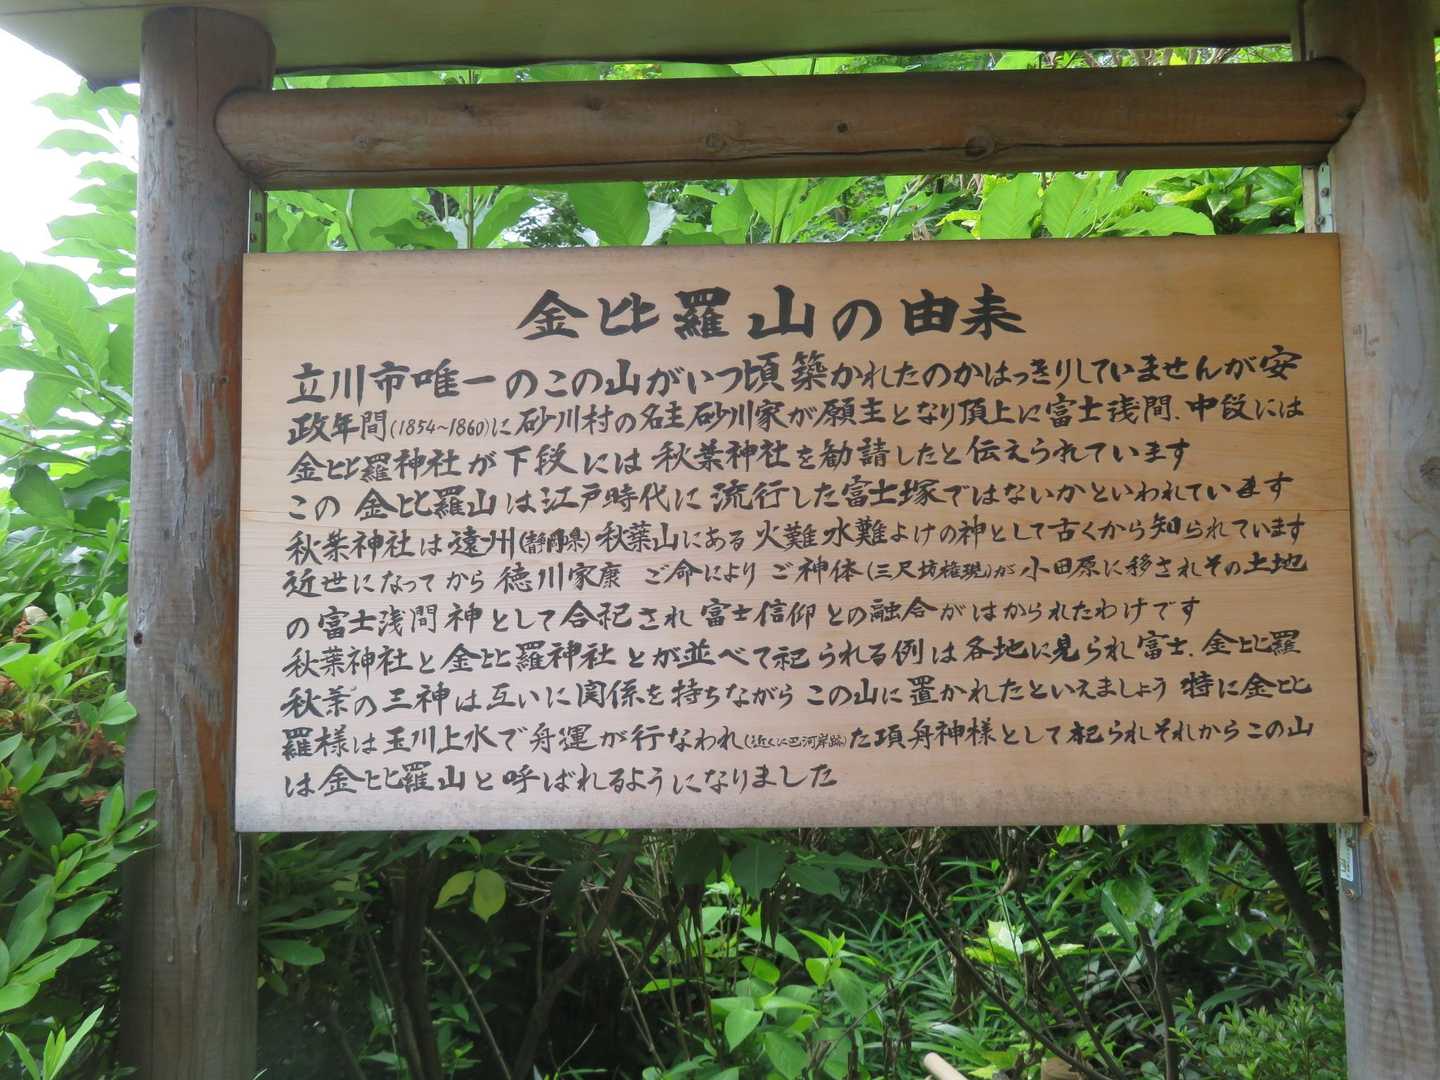 金比羅山の由来
立川市唯一のこの山がいつ頃築かれたのかはっきりしていませんが安
政年間(1854～1860)に砂川村の名主砂川家が願主となり頂上に富士浅間、中段には
金比羅神社が下段には秋葉神社を勧請したと伝えられています
この金比羅山は江戸時代に流行した富士塚ではないかといわれています
秋葉神社は遠州(静岡県)秋葉山にある火難水難よけの神として古くから知られています
近世になってから徳川家康ご命によりご神体(三尺坊権現)が小田原に移されその土地
の富士浅間神として合祀され富士信仰との融合がはかられたわけです
秋葉神社と金比羅神社とが並べて祀られる例は各地に見られ富士、金比羅
秋葉の三神は互いに関係を持ちながらこの山に置かれたといえましょう特に金比
羅様は玉川上水で舟運が行なわれ(近くに巴河岸跡)た項舟神様として祀られそれからこの山
は金比羅山と呼ばれるようになりました